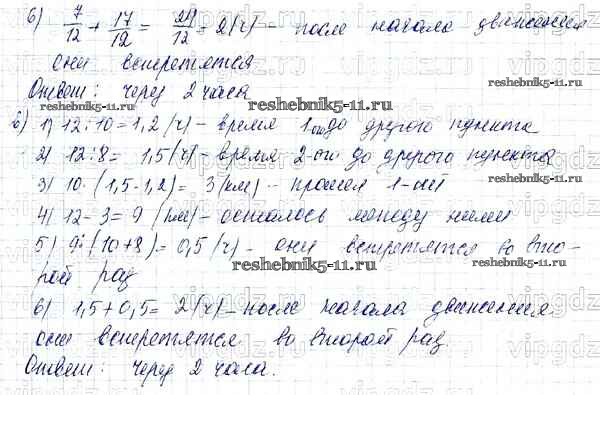 6) 7/12 + 17/12 = 24/12 = 2(ч) – после начала движения
они встретятся
Ответ: через 2 часа
reshebnik5-11.ru
в) 1) 12:10=1,2 (ч) – время 1ого до другого пункта
2) 12:8= 1,5(ч) – время 2-ого до другого пункта
3) 10·(1,5-1,2)= 3(км) – прошел 1-ый
reshebnik5-11.ru
4) 12-3=9 (км) – осталось между ними
5) 9:(10+8)=0,5(ч) – они встретятся во вто-
рой раз
reshebnik5-11.ru
6) 1,5+0,5= 2(ч) – после начала движения
они встретятся во второй раз
Ответ: через 2 часа.
vipgdz.ru